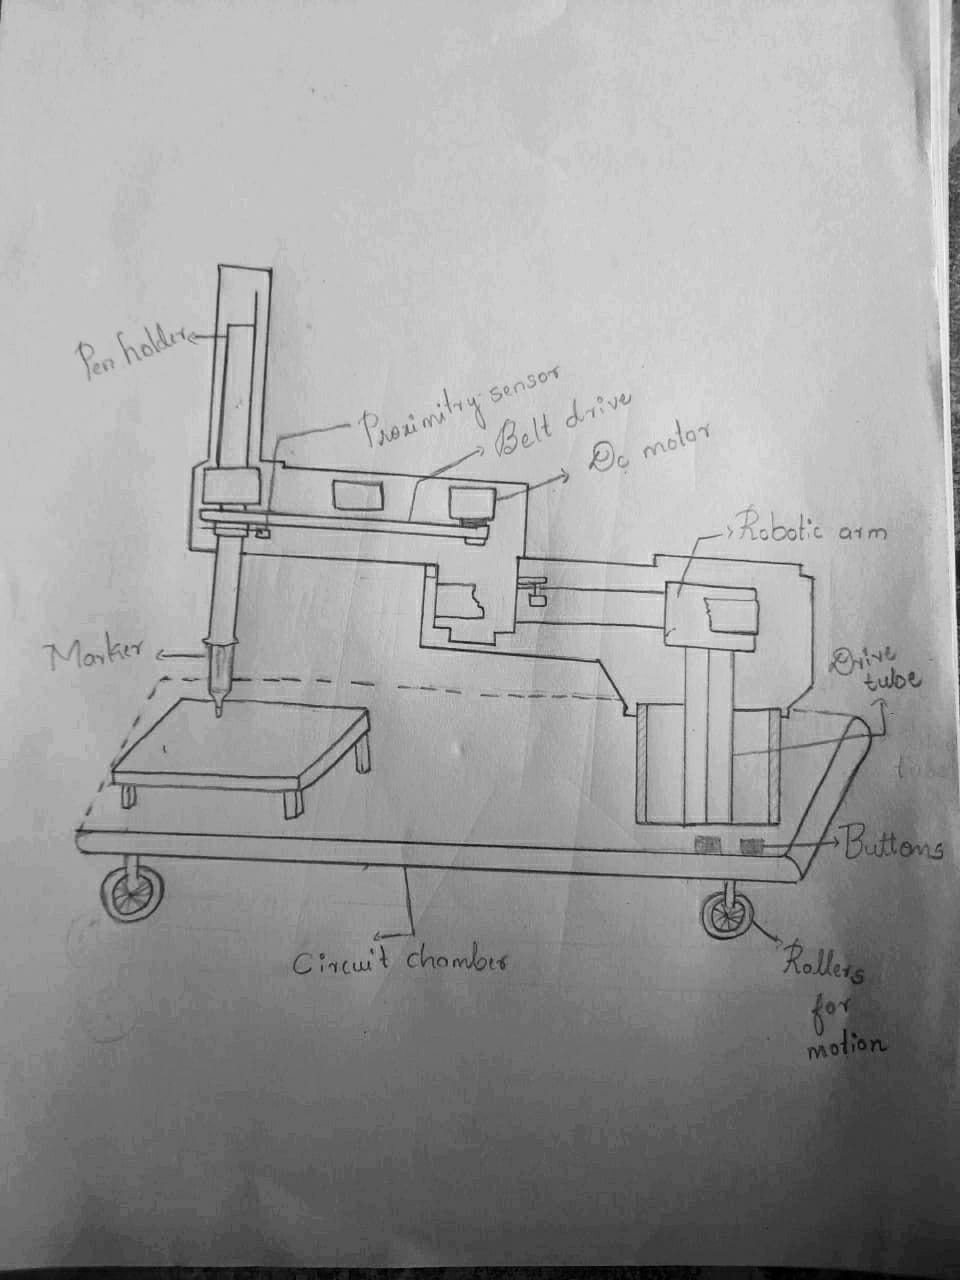 Pen holder
Proximitry sensor
Belt drive
Dc motor
Robotic arm
Marker
Drive
tube
Buttons
Circuit chamber
Rollers
for
motion